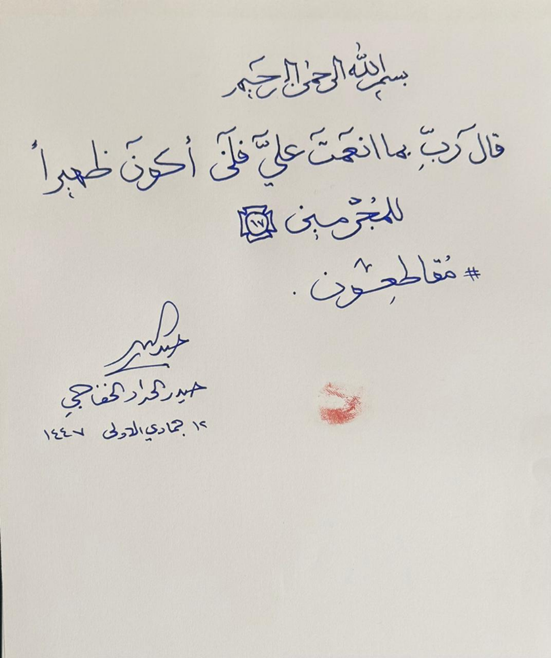 بسم الله الرحمن الرحيم
قال رَبِّ بما انعَمَتَ عليَّ فلَنَ أكونَ ظهيراً
للمُجْرمين ١٧
# مُقاطِعون.
حيدر
حيدر الحداد الخفاجي
١٢ جمادي الاولى ١٤٤٧